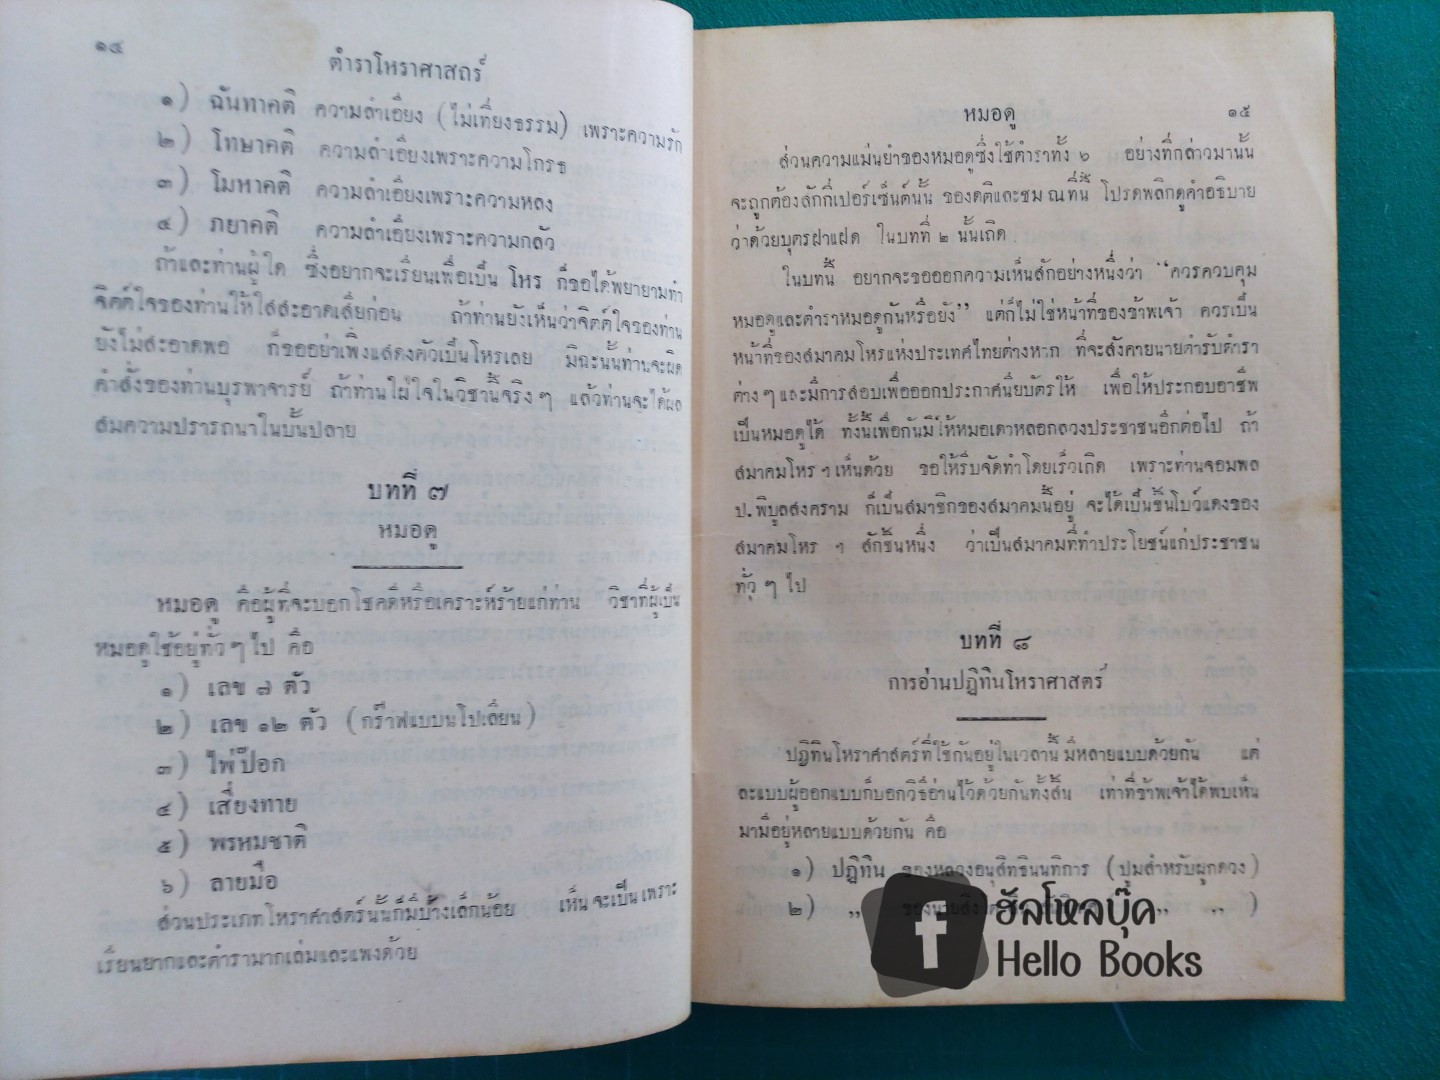 ๑๔
ตำราโหราศาสตร์
๑) ฉันทาคติ ความลำเอียง (ไม่เที่ยงธรรม) เพราะความรัก
๒) โทษาคติ ความลำเอียงเพราะความโกรธ
๓) โมหาคติ ความลำเอียงเพราะความหลง
๔) ภยาคติ ความลำเอียงเพราะความกลัว
ถ้าและท่านผู้ใด ซึ่งอยากจะเรียนเพื่อเป็น โหร ก็ขอได้พยายามทำ
จิตต์ใจของท่านให้ใสสะอาดเสียก่อน ถ้าท่านยังเห็นว่าจิตต์ใจของท่าน
ยังไม่สะอาดพอ ก็ขออย่าเพิ่งแสดงตัวเป็นโหรเลย มิฉะนั้นท่านจะผิด
คำสั่งของท่านบุรพาจารย์ ถ้าท่านใฝ่ใจในวิชานี้จริง ๆ แล้วท่านจะได้ผล
สมความปรารถนาในบั้นปลาย
บทที่ ๗
หมอดู
หมอดู คือผู้ที่จะบอกโชคดีหรือเคราะห์ร้ายแก่ท่าน วิชาที่ผู้เป็น
หมอดูใช้อยู่ทั่ว ๆ ไป คือ
๑) เลข ๗ ตัว
๒) เลข ๑๒ ตัว (กร๊าฟแบบนโปเลียน)
๓) ไพ่ป๊อก
๔) เสี่ยงทาย
๕) พรหมชาติ
๖) ลายมือ
ส่วนประเภทโหราศาสตร์นั้นก็มีบ้างเล็กน้อย เห็นจะเป็นเพราะ
เรียนยากและตำรามากเล่มและแพงด้วย
หมอดู ๑๕
ส่วนความแม่นยำของหมอดูซึ่งใช้ตำราทั้ง ๖ อย่างที่กล่าวมานั้น
จะถูกต้องสักกี่เปอร์เซ็นต์นั้น ของดติและชม ณ ที่นี้ โปรดพลิกดูคำอธิบาย
ว่าด้วยบุตรฝาแฝด ในบทที่ ๒ นั้นเถิด
ในบทนี้ อยากจะขอออกความเห็นสักอย่างหนึ่งว่า “ควรควบคุม
หมอดูและตำราหมอดูกันหรือยัง” แต่ก็ไม่ใช่หน้าที่ของข้าพเจ้า ควรเป็น
หน้าที่ของสมาคมโหรแห่งประเทศไทยต่างหาก ที่จะสังคายนายตำรับตำรา
ต่าง ๆ และมีการสอบเพื่อออกประกาศนียบัตรให้ เพื่อให้ประกอบอาชีพ
เป็นหมอดูได้ ทั้งนี้เพื่อกันมิให้หมอเดาหลอกลวงประชาชนอีกต่อไป ถ้า
สมาคมโหร ฯ เห็นด้วย ขอให้รีบจัดทำโดยเร็วเถิด เพราะท่านจอมพล
ป. พิบูลสงคราม ก็เป็นสมาชิกของสมาคมนี้อยู่ จะได้เป็นชิ้นโบว์แดงของ
สมาคมโหร ฯ สักชิ้นหนึ่ง ว่าเป็นสมาคมที่ทำประโยชน์แก่ประชาชน
ทั่ว ๆ ไป
บทที่ ๘
การอ่านปฏิทินโหราศาสตร์
ปฏิทินโหราศาสตร์ที่ใช้กันอยู่ในเวลานี้ มีหลายแบบด้วยกัน แต่
ละแบบผู้ออกแบบก็บอกวิธีอ่านไว้ด้วยกันทั้งสิ้น เท่าที่ข้าพเจ้าได้พบเห็น
มามีอยู่หลายแบบด้วยกัน คือ
๑) ปฏิทิน ของหลวงอนุสิทธินนทิการ (ปูมสำหรับผูกดวง)
๒) ,, ของนาย ,, ,, )
f ฮัลโหลบุ๊ค
Hello Books